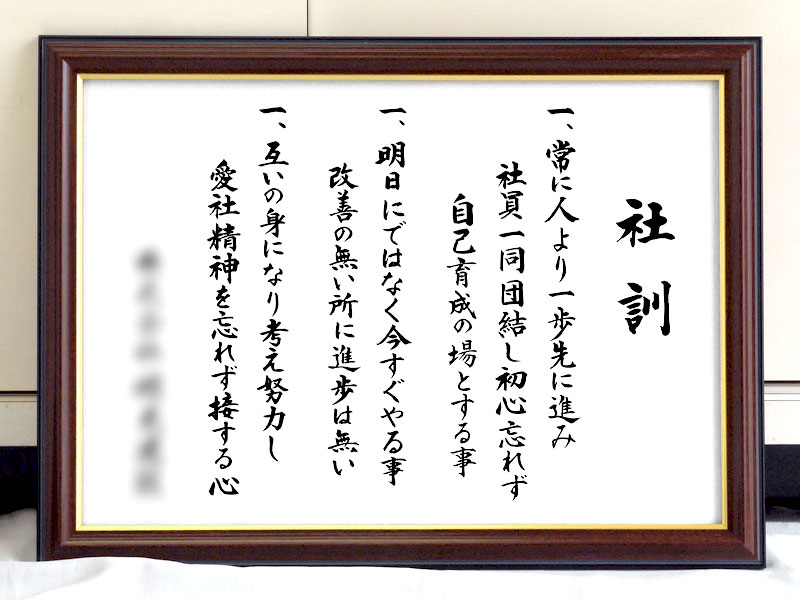 社訓
一、常に人より一歩先に進み
社員一同団結し初心忘れず
自己育成の場とする事
一、明日にではなく今すぐやる事
改善の無い所に進歩は無い
一、互いの身になり考え努力し
愛社精神を忘れず接する心